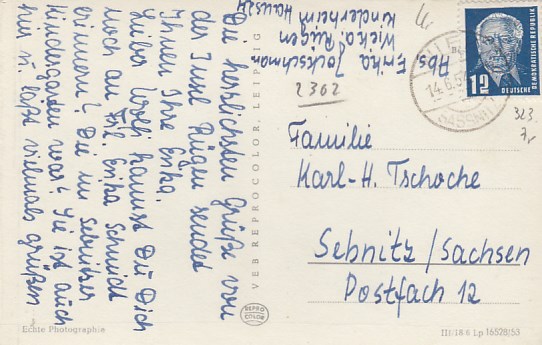 Die herrlichsten Grüße von
der Insel Rügen sendet
Ihnen Ihre Erika.
Lieber Wolf, kannst Du Dich
noch an Frl. Erika Schmidt
erinnern? Die im Sebnitzer
Kindergarten war? Sie ist auch
hier u. läßt vielmals grüßen
Abs. Erika
Wiek a. Rügen
Kinderheim Haus 24
VEB REPROCOLOR, LEIPZIG
2302
12
DEUTSCHE DEMOKRATISCHE REPUBLIK
14.6.54
SASSNITZ
323
Familie
Karl-H. Tschoche
Sebnitz/Sachsen
Postfach 12
3
Echte Photographie
REPRO
COLOR
III/18 6 Lp 16528/53